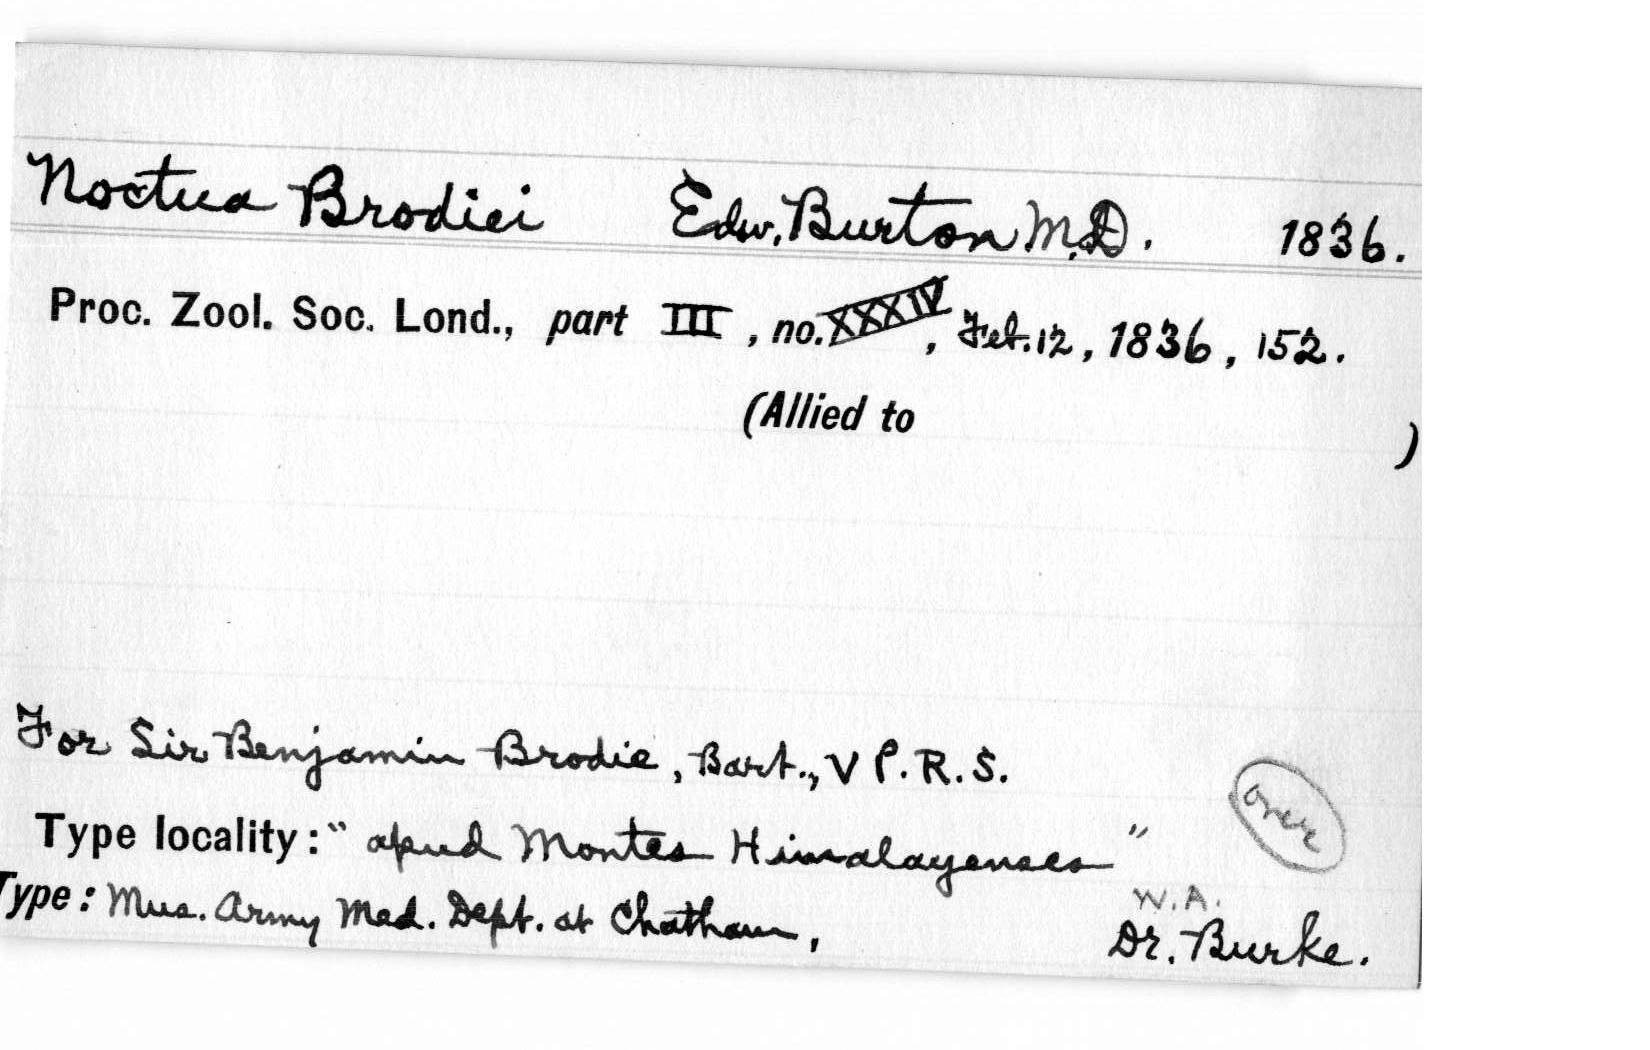 Noctua Brodiei Edw. Burton M.D. 1836.
Proc. Zool. Soc. Lond., part III, no. XXXIV, Feb. 12, 1836, 152.
(Allied to )
For Sir Benjamin Brodie, Bart., V P. R. S.
over
Type locality: " apud Montes Himalayenses "
W. A.
Type: Mus. Army Med. Dept. at Chatham, Dr. Burke.